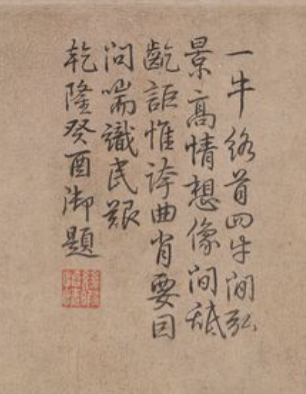 一牛絡首四牛閒弘
景高情想像間舐
齕詎惟誇曲肖要因
問喘識民艱
乾隆癸酉御題